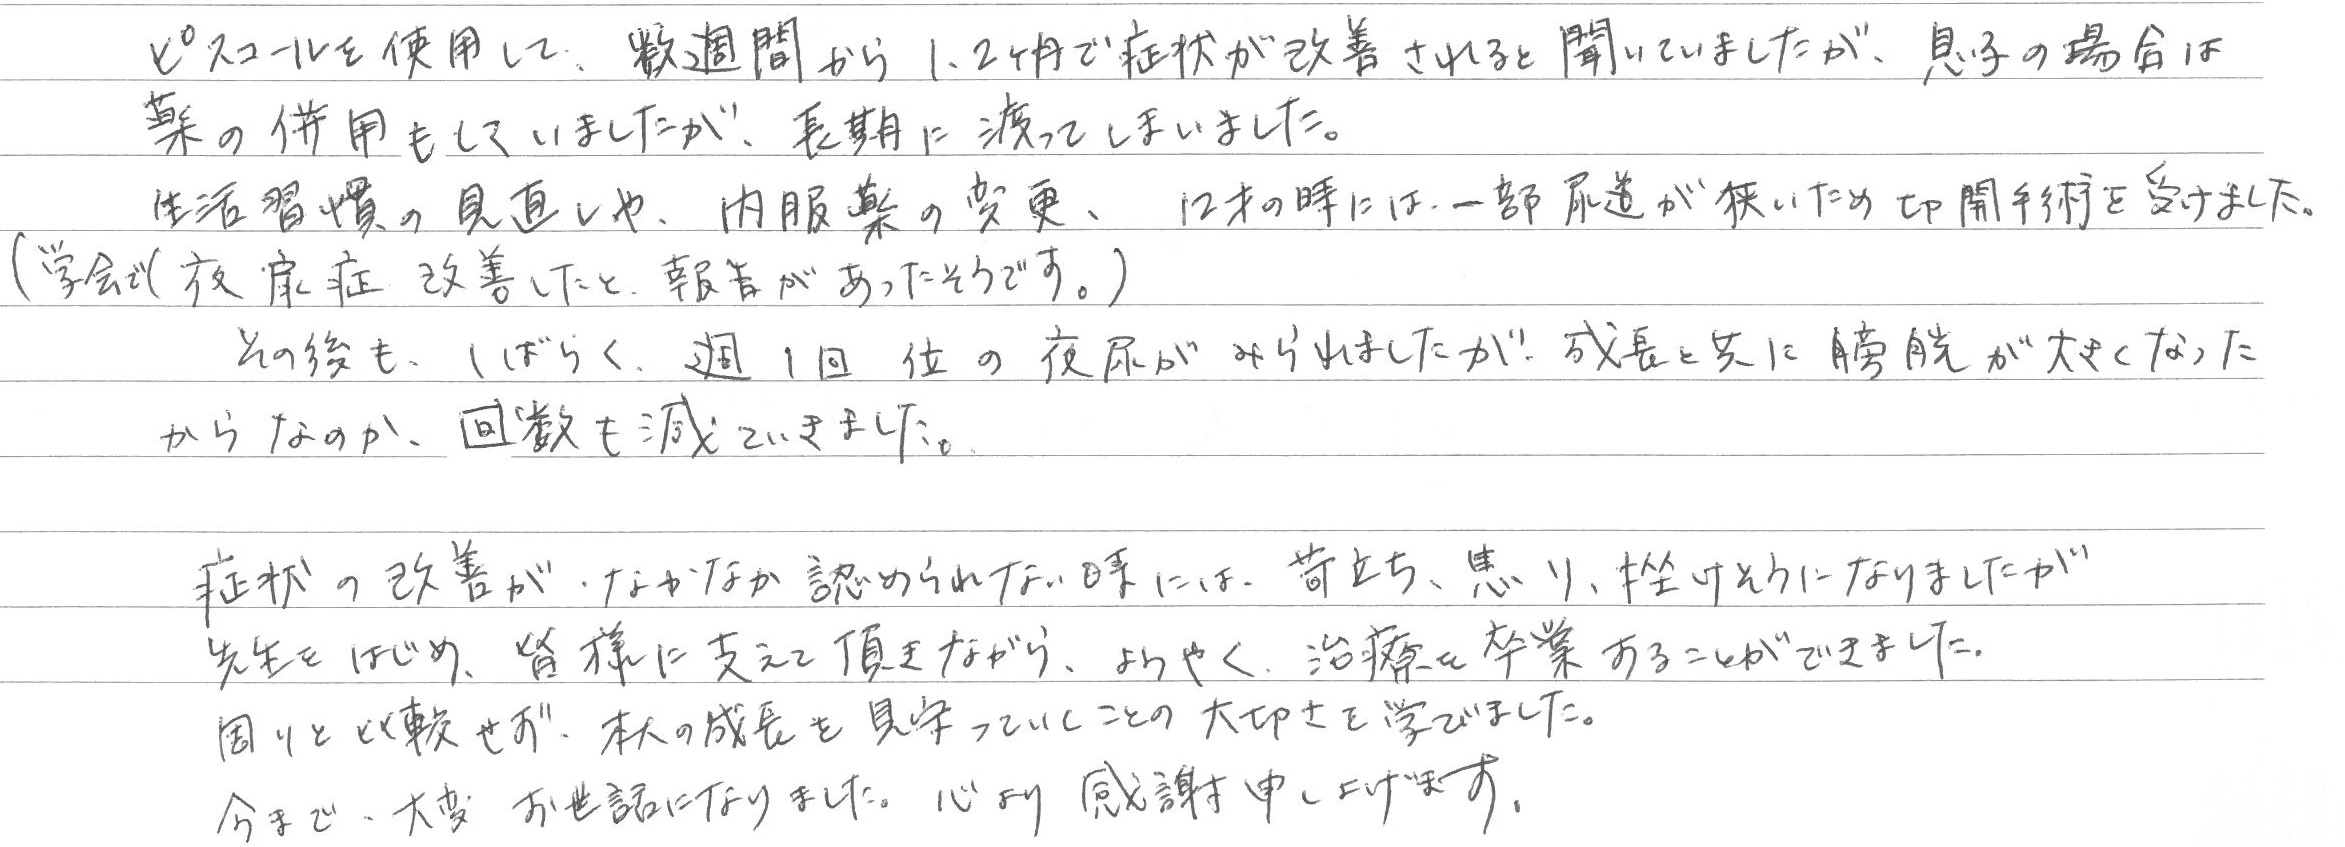 ピスコールを使用して、数週間から1、2ヶ月で症状が改善されると聞いていましたが、息子の場合は
薬の併用もしていましたが、長期に渡ってしまいました。
生活習慣の見直しや、内服薬の変更、12才の時には、一部尿道が狭いため切開手術を受けました。
(学会で(夜尿症改善したと、報告があったそうです。)
その後も、しばらく、週1回位の夜尿がみられましたが、成長と共に膀胱が大きくなった
からなのか、回数も減っていきました。
症状の改善が、なかなか認められない時には、苛立ち、焦り、挫けそうになりましたが
先生をはじめ、皆様に支えて頂きながら、ようやく、治療を卒業することができました。
周りと比較せず、本人の成長を見守っていくことの大切さを学びました。
今まで、大変お世話になりました。心より感謝申し上げます。